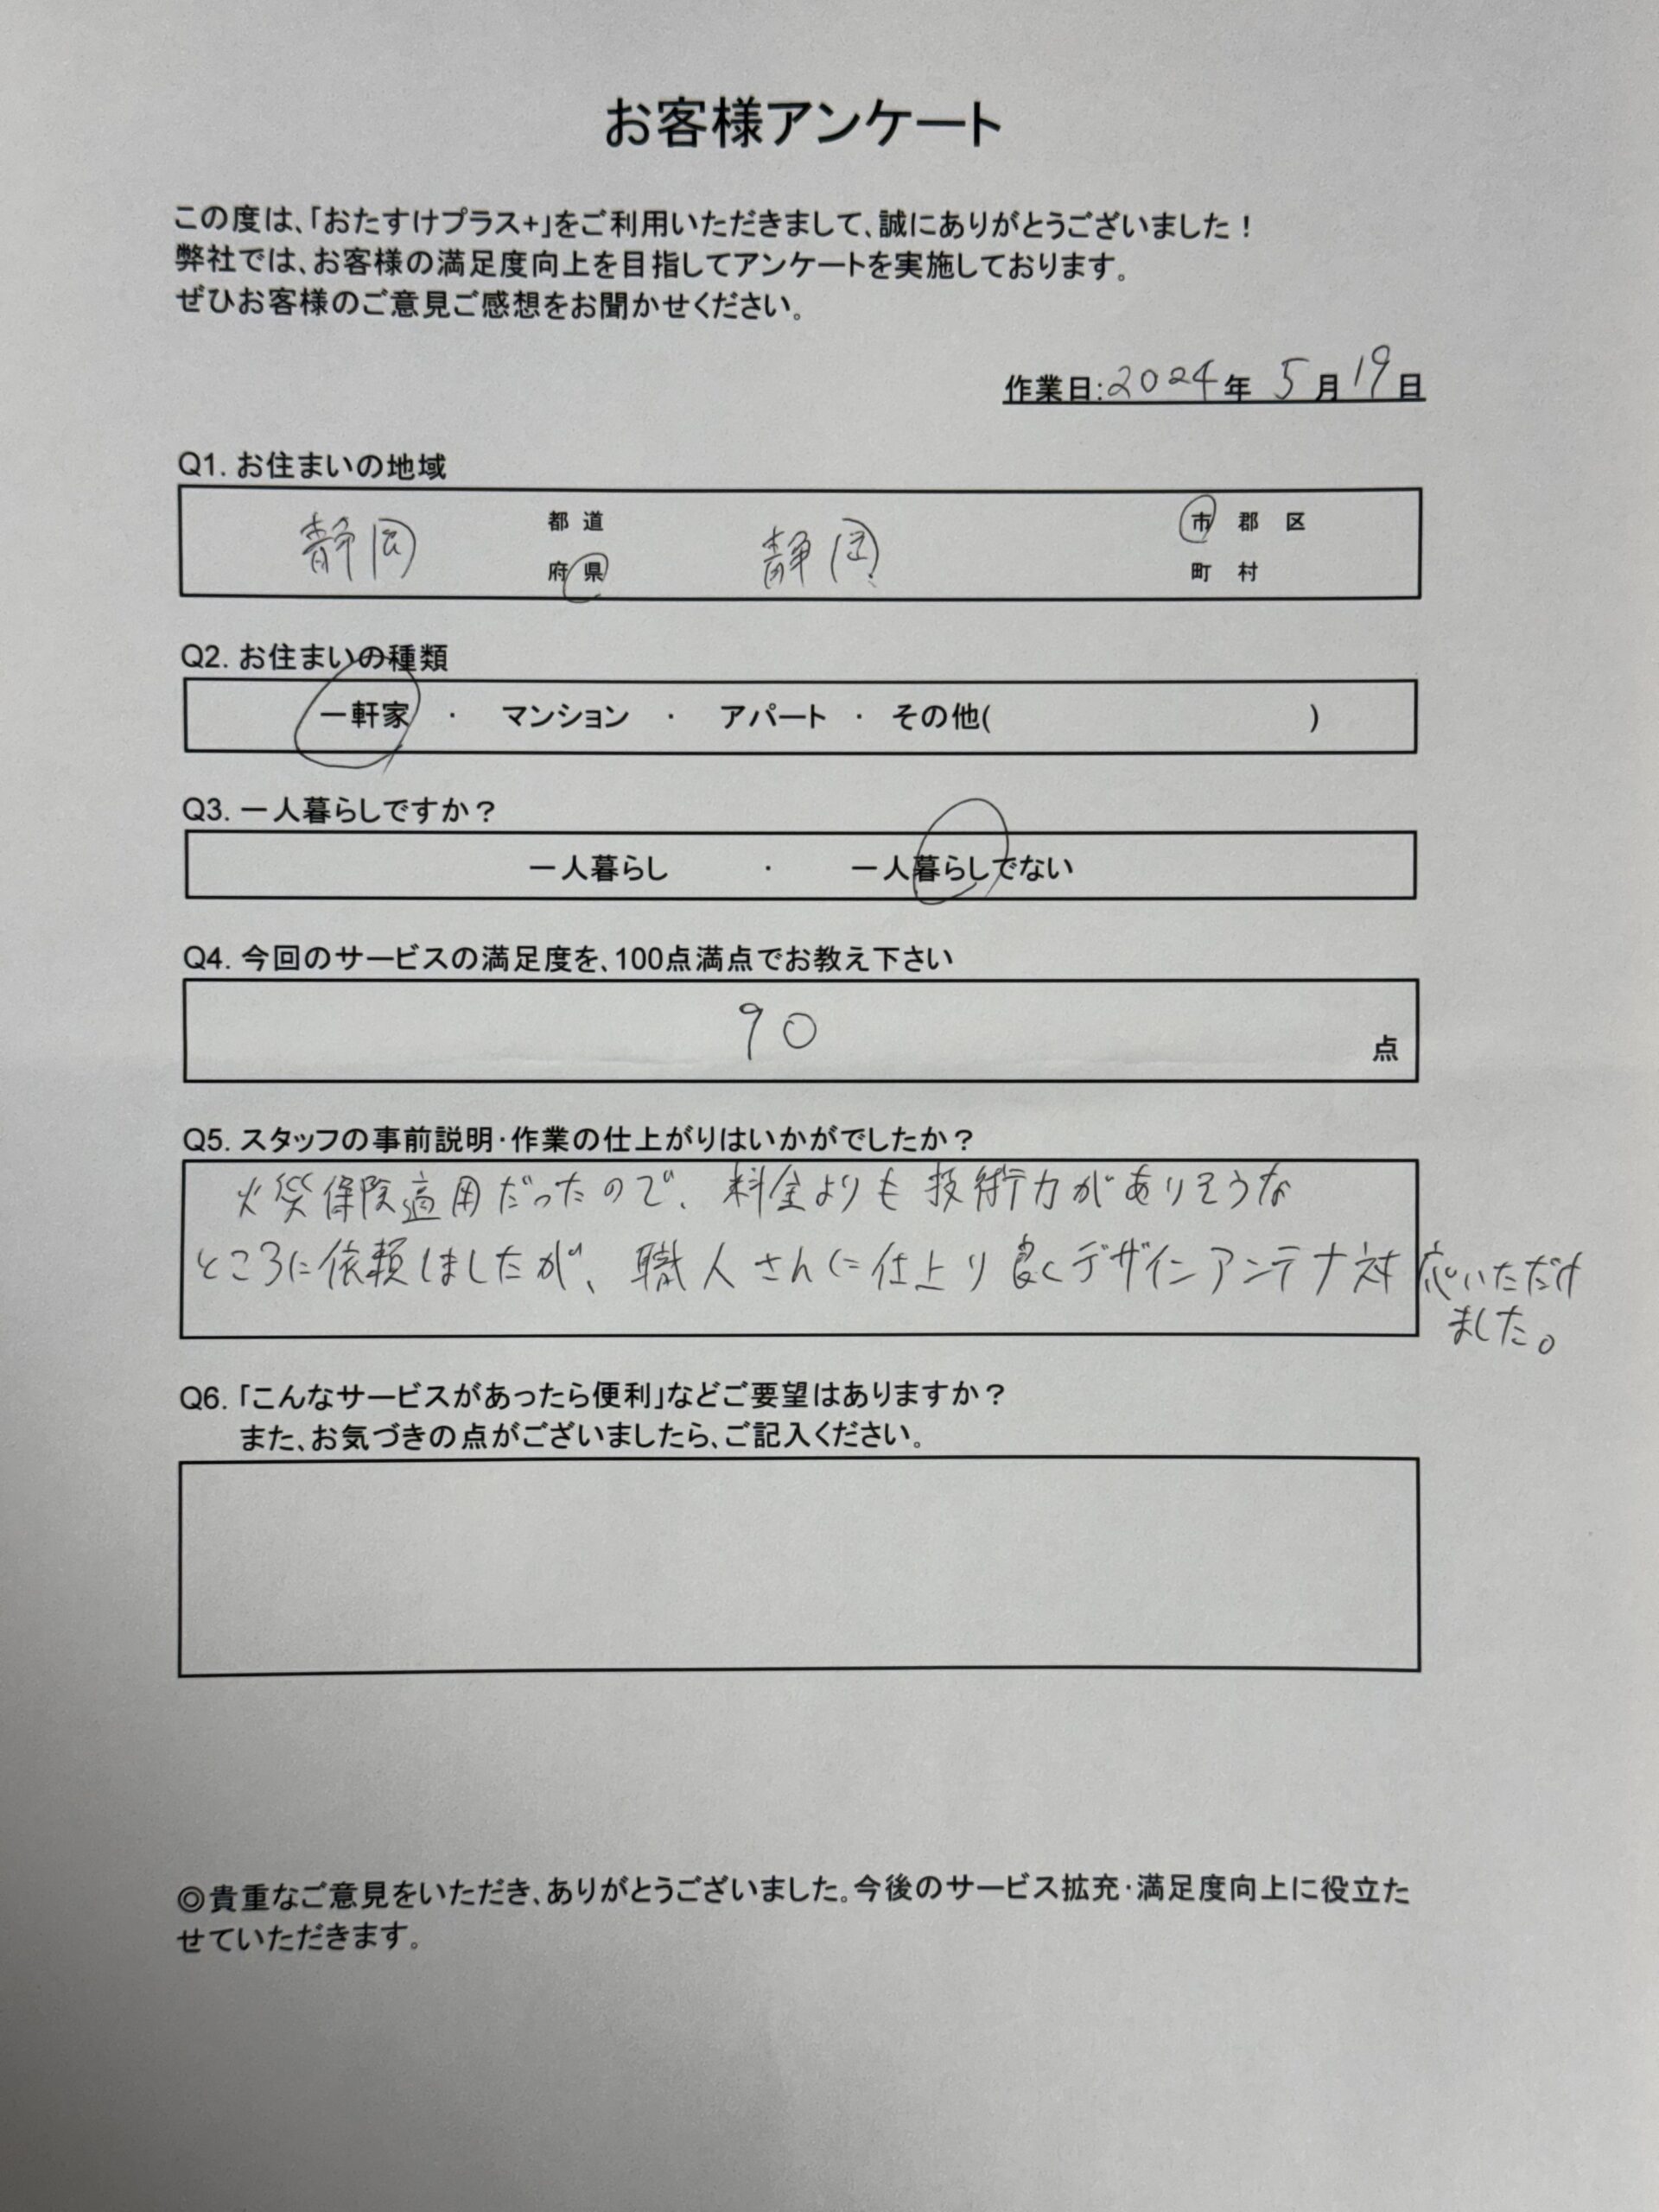 お客様アンケート
この度は、「おたすけプラス+」をご利用いただきまして、誠にありがとうございました！
弊社では、お客様の満足度向上を目指してアンケートを実施しております。
ぜひお客様のご意見ご感想をお聞かせください。
作業日:2024年 5月19日
Q1. お住まいの地域
静岡 都 道 静岡 市 郡 区
府 県 町 村
Q2. お住まいの種類
一軒家 ・ マンション ・ アパート ・ その他( )
Q3. 一人暮らしですか？
一人暮らし ・ 一人暮らしでない
Q4. 今回のサービスの満足度を、100点満点でお教え下さい
90 点
Q5. スタッフの事前説明・作業の仕上がりはいかがでしたか？
火災保険適用だったので、料金よりも技術力がありそうな
ところに依頼しましたが、職人さんに仕上り良くデザインアンテナ対応いただけ
ました。
Q6. 「こんなサービスがあったら便利」などご要望はありますか？
また、お気づきの点がございましたら、ご記入ください。
◎貴重なご意見をいただき、ありがとうございました。今後のサービス拡充・満足度向上に役立た
せていただきます。